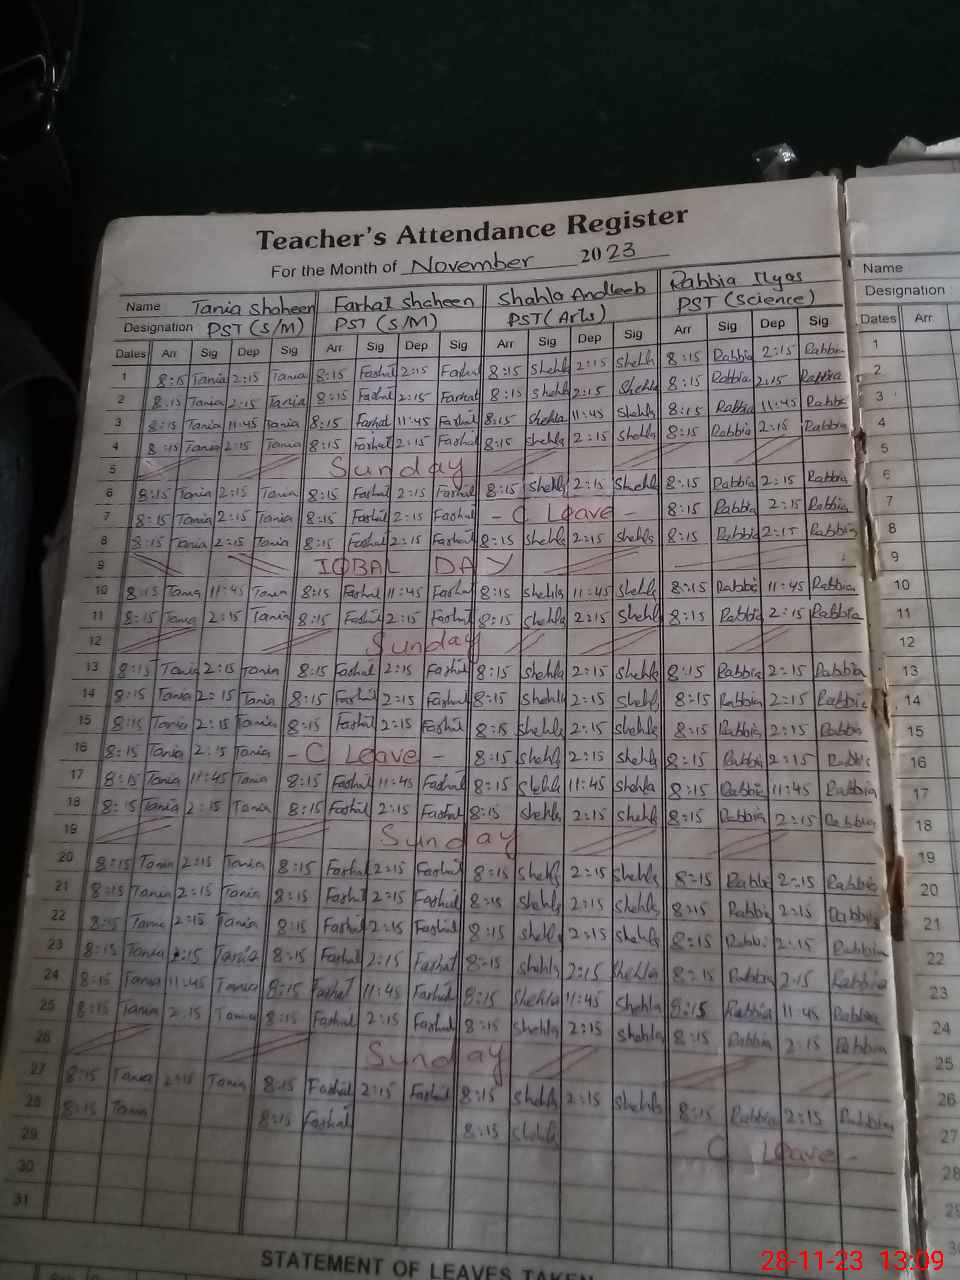 Teacher's Attendance Register
For the Month of November 2023
Name Tania Shaheen Farhat Shaheen Shahla Andleeb Rabbia Ilyas
Designation PST (S/M) PST (S/M) PST (Arts) PST (Science)
Dates Arr Sig Dep Sig Arr Sig Dep Sig Arr Sig Dep Sig Arr Sig Dep Sig
1 8:15 Tania 2:15 Tania 8:15 Farhat 2:15 Farhat 8:15 Shehla 2:15 Shehla 8:15 Rabbia 2:15 Rabbia
2 8:15 Tania 2:15 Tania 8:15 Farhat 2:15 Farhat 8:15 Shehla 2:15 Shehla 8:15 Rabbia 2:15 Rabbia
3 8:15 Tania 11:45 Tania 8:15 Farhat 11:45 Farhat 8:15 Shehla 11:45 Shehla 8:15 Rabbia 11:45 Rabbia
4 8:15 Tania 2:15 Tania 8:15 Farhat 2:15 Farhat 8:15 Shehla 2:15 Shehla 8:15 Rabbia 2:15 Rabbia
5 Sunday
6 8:15 Tania 2:15 Tania 8:15 Farhat 2:15 Farhat 8:15 Shehla 2:15 Shehla 8:15 Rabbia 2:15 Rabbia
7 8:15 Tania 2:15 Tania 8:15 Farhat 2:15 Farhat - C Leave - 8:15 Rabbia 2:15 Rabbia
8 8:15 Tania 2:15 Tania 8:15 Farhat 2:15 Farhat 8:15 Shehla 2:15 Shehla 8:15 Rabbia 2:15 Rabbia
9 IQBAL DAY
10 8:15 Tania 11:45 Tania 8:15 Farhat 11:45 Farhat 8:15 Shehla 11:45 Shehla 8:15 Rabbia 11:45 Rabbia
11 8:15 Tania 2:15 Tania 8:15 Farhat 2:15 Farhat 8:15 Shehla 2:15 Shehla 8:15 Rabbia 2:15 Rabbia
12 Sunday
13 8:15 Tania 2:15 Tania 8:15 Farhat 2:15 Farhat 8:15 Shehla 2:15 Shehla 8:15 Rabbia 2:15 Rabbia
14 8:15 Tania 2:15 Tania 8:15 Farhat 2:15 Farhat 8:15 Shehla 2:15 Shehla 8:15 Rabbia 2:15 Rabbia
15 8:15 Tania 2:15 Tania 8:15 Farhat 2:15 Farhat 8:15 Shehla 2:15 Shehla 8:15 Rabbia 2:15 Rabbia
16 8:15 Tania 2:15 Tania - C Leave - 8:15 Shehla 2:15 Shehla 8:15 Rabbia 2:15 Rabbia
17 8:15 Tania 11:45 Tania 8:15 Farhat 11:45 Farhat 8:15 Shehla 11:45 Shehla 8:15 Rabbia 11:45 Rabbia
18 8:15 Tania 2:15 Tania 8:15 Farhat 2:15 Farhat 8:15 Shehla 2:15 Shehla 8:15 Rabbia 2:15 Rabbia
19 Sunday
20 8:15 Tania 2:15 Tania 8:15 Farhat 2:15 Farhat 8:15 Shehla 2:15 Shehla 8:15 Rabbia 2:15 Rabbia
21 8:15 Tania 2:15 Tania 8:15 Farhat 2:15 Farhat 8:15 Shehla 2:15 Shehla 8:15 Rabbia 2:15 Rabbia
22 8:15 Tania 2:15 Tania 8:15 Farhat 2:15 Farhat 8:15 Shehla 2:15 Shehla 8:15 Rabbia 2:15 Rabbia
23 8:15 Tania 2:15 Tania 8:15 Farhat 2:15 Farhat 8:15 Shehla 2:15 Shehla 8:15 Rabbia 2:15 Rabbia
24 8:15 Tania 11:45 Tania 8:15 Farhat 11:45 Farhat 8:15 Shehla 11:45 Shehla 8:15 Rabbia 11:45 Rabbia
25 8:15 Tania 2:15 Tania 8:15 Farhat 2:15 Farhat 8:15 Shehla 2:15 Shehla 8:15 Rabbia 2:15 Rabbia
26 Sunday
27 8:15 Tania 2:15 Tania 8:15 Farhat 2:15 Farhat 8:15 Shehla 2:15 Shehla 8:15 Rabbia 2:15 Rabbia
28 8:15 Tania 8:15 Farhat 8:15 Shehla - C Leave -
29
30
31
STATEMENT OF LEAVES TAKEN
Name
Designation
Dates Arr
1
2
3
4
5
6
7
8
9
10
11
12
13
14
15
16
17
18
19
20
21
22
23
24
25
26
27
28
29
30
28-11-23 13:09